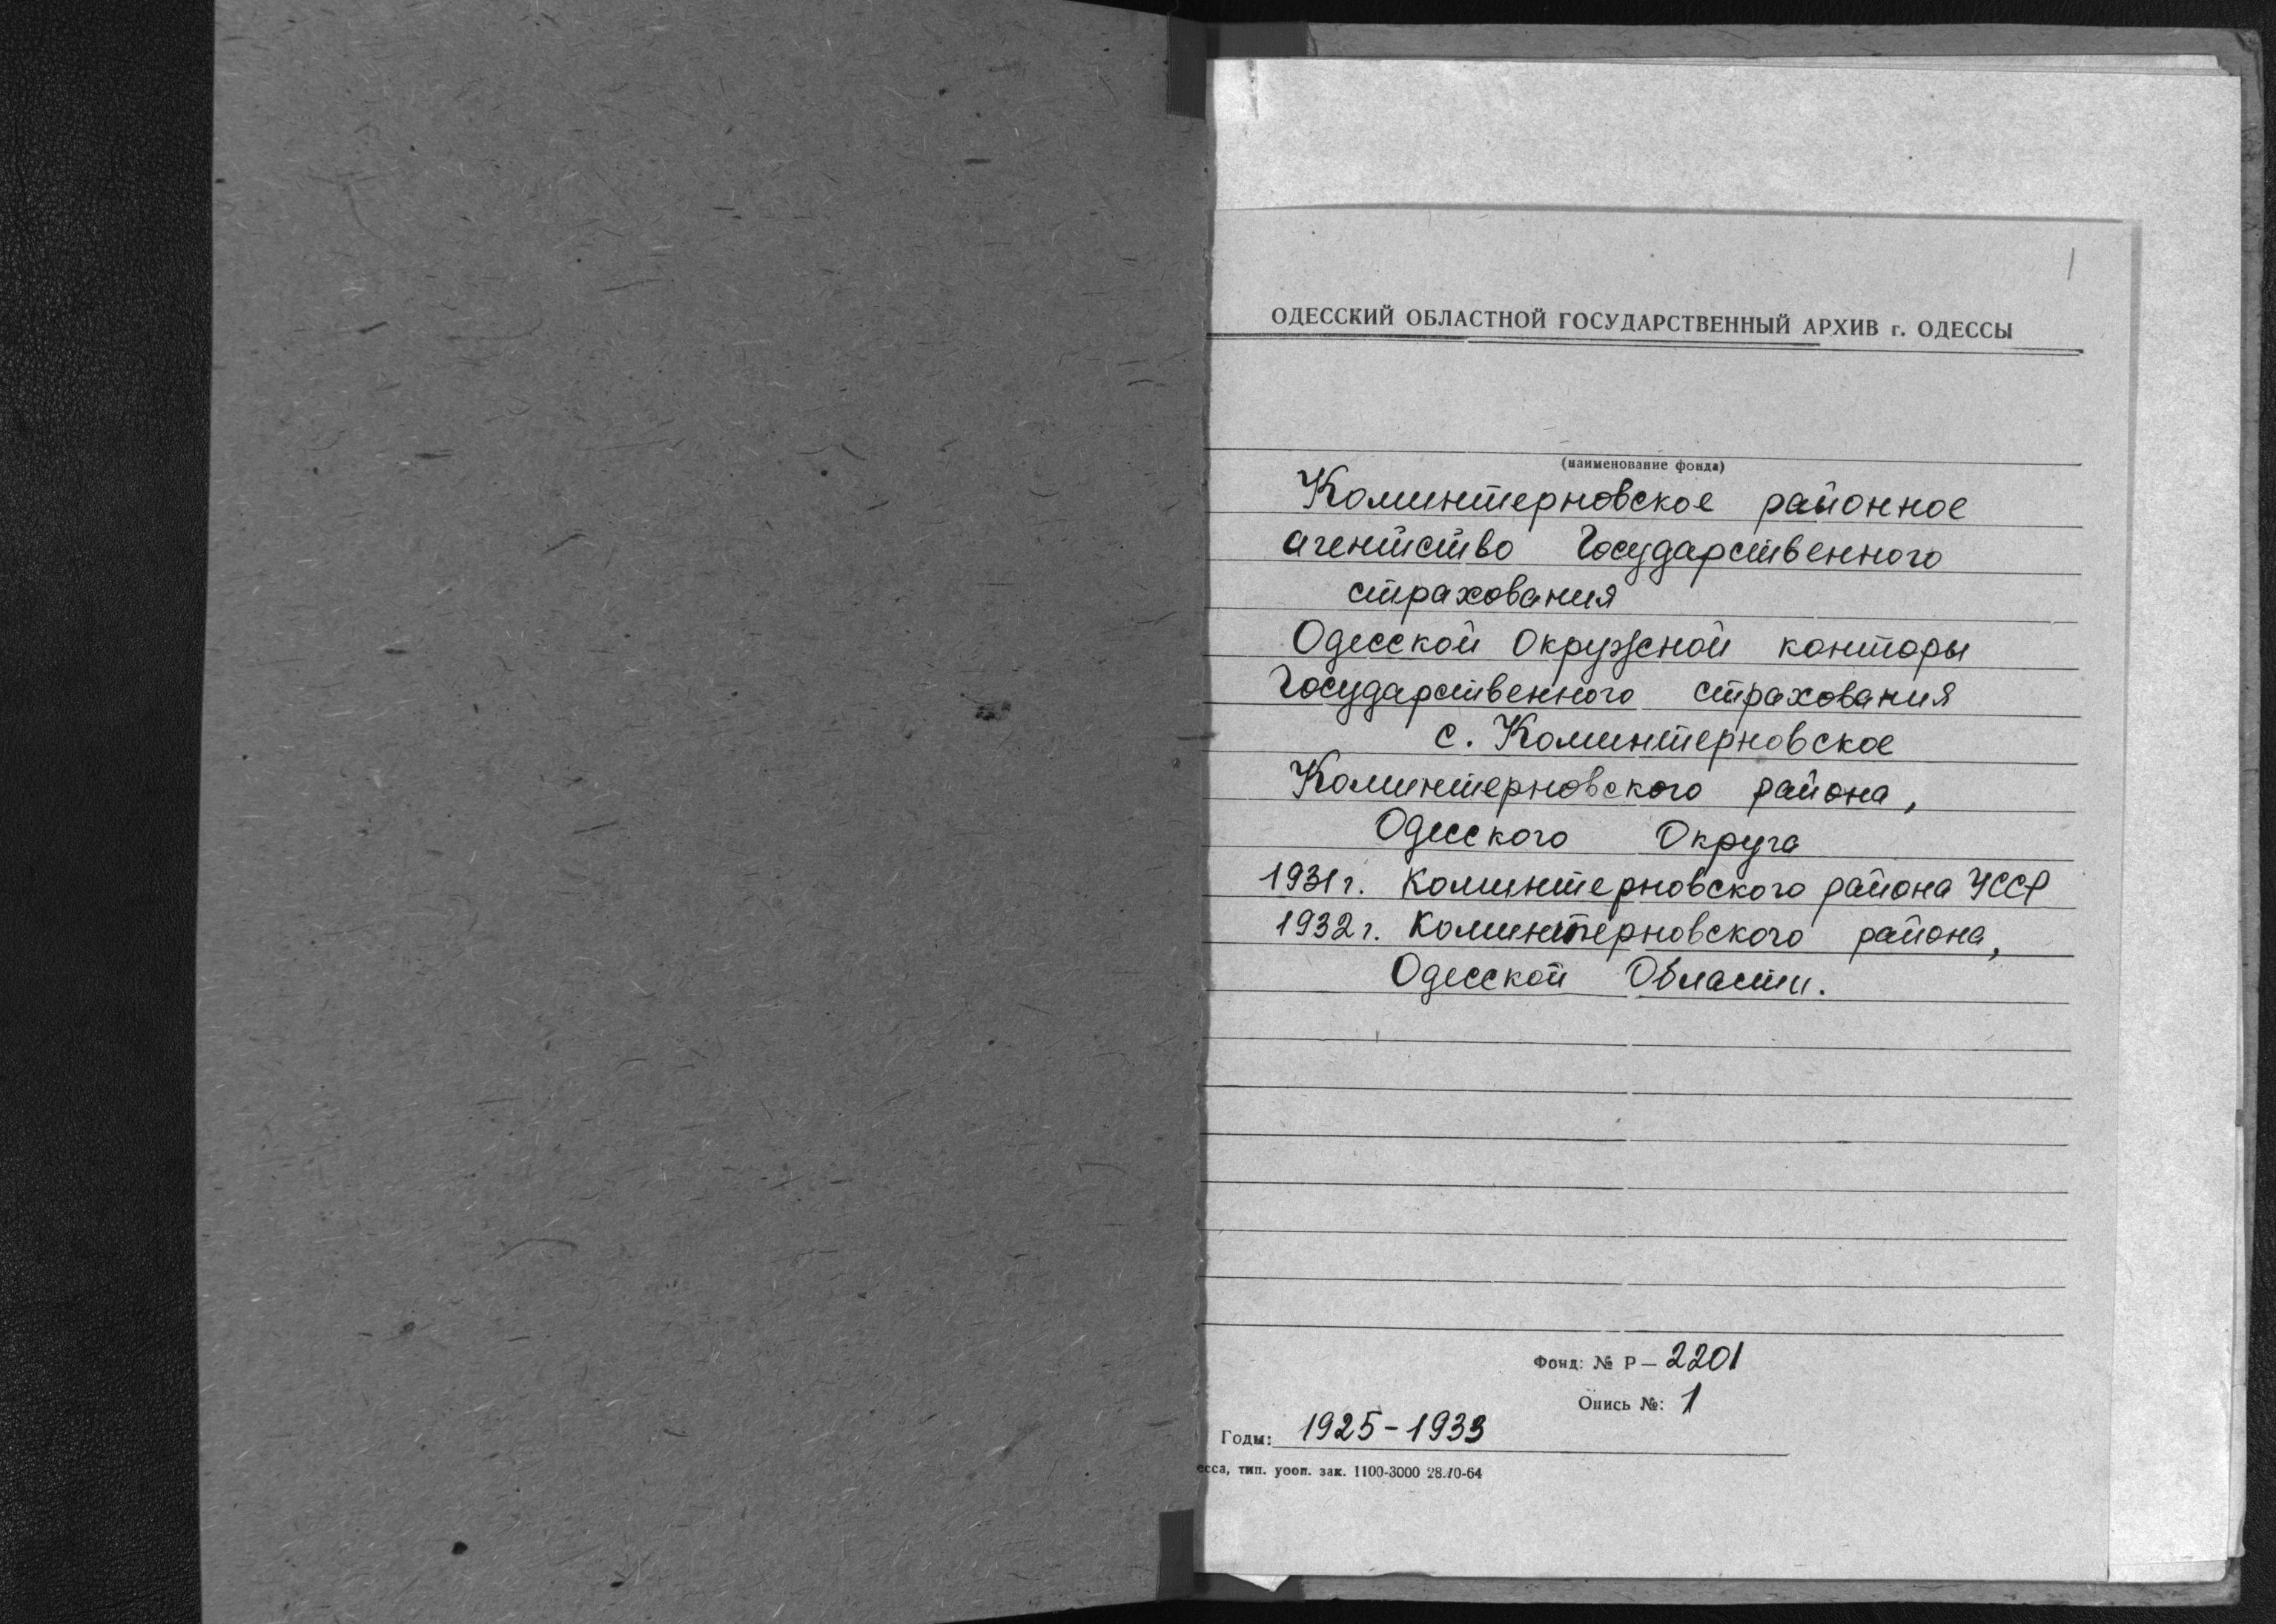 1
ОДЕССКИЙ ОБЛАСТНОЙ ГОСУДАРСТВЕННЫЙ АРХИВ г. ОДЕССЫ
(наименование фонда)
Коминтерновское районное
агентство Государственного
страхования
Одесской Окружной конторы
Государственного страхования
с. Коминтерновское
Коминтерновского района,
Одесского Округа
1931 г. Коминтерновского района УССР
1932 г. Коминтерновского района,
Одесской Области.
Фонд: № Р — 2201
Опись №: 1
Годы: 1925-1933
есса, тип. уооп. зак. 1100-3000 28.10-64